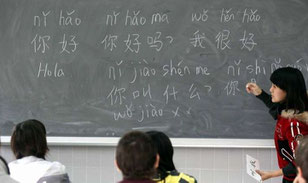 nǐ hǎo nǐ hǎo ma wǒ hěn hǎo
你好 你好吗? 我很好
Hola nǐ jiào shén me nǐ shì
你叫什么? 你
wǒ jiào x x